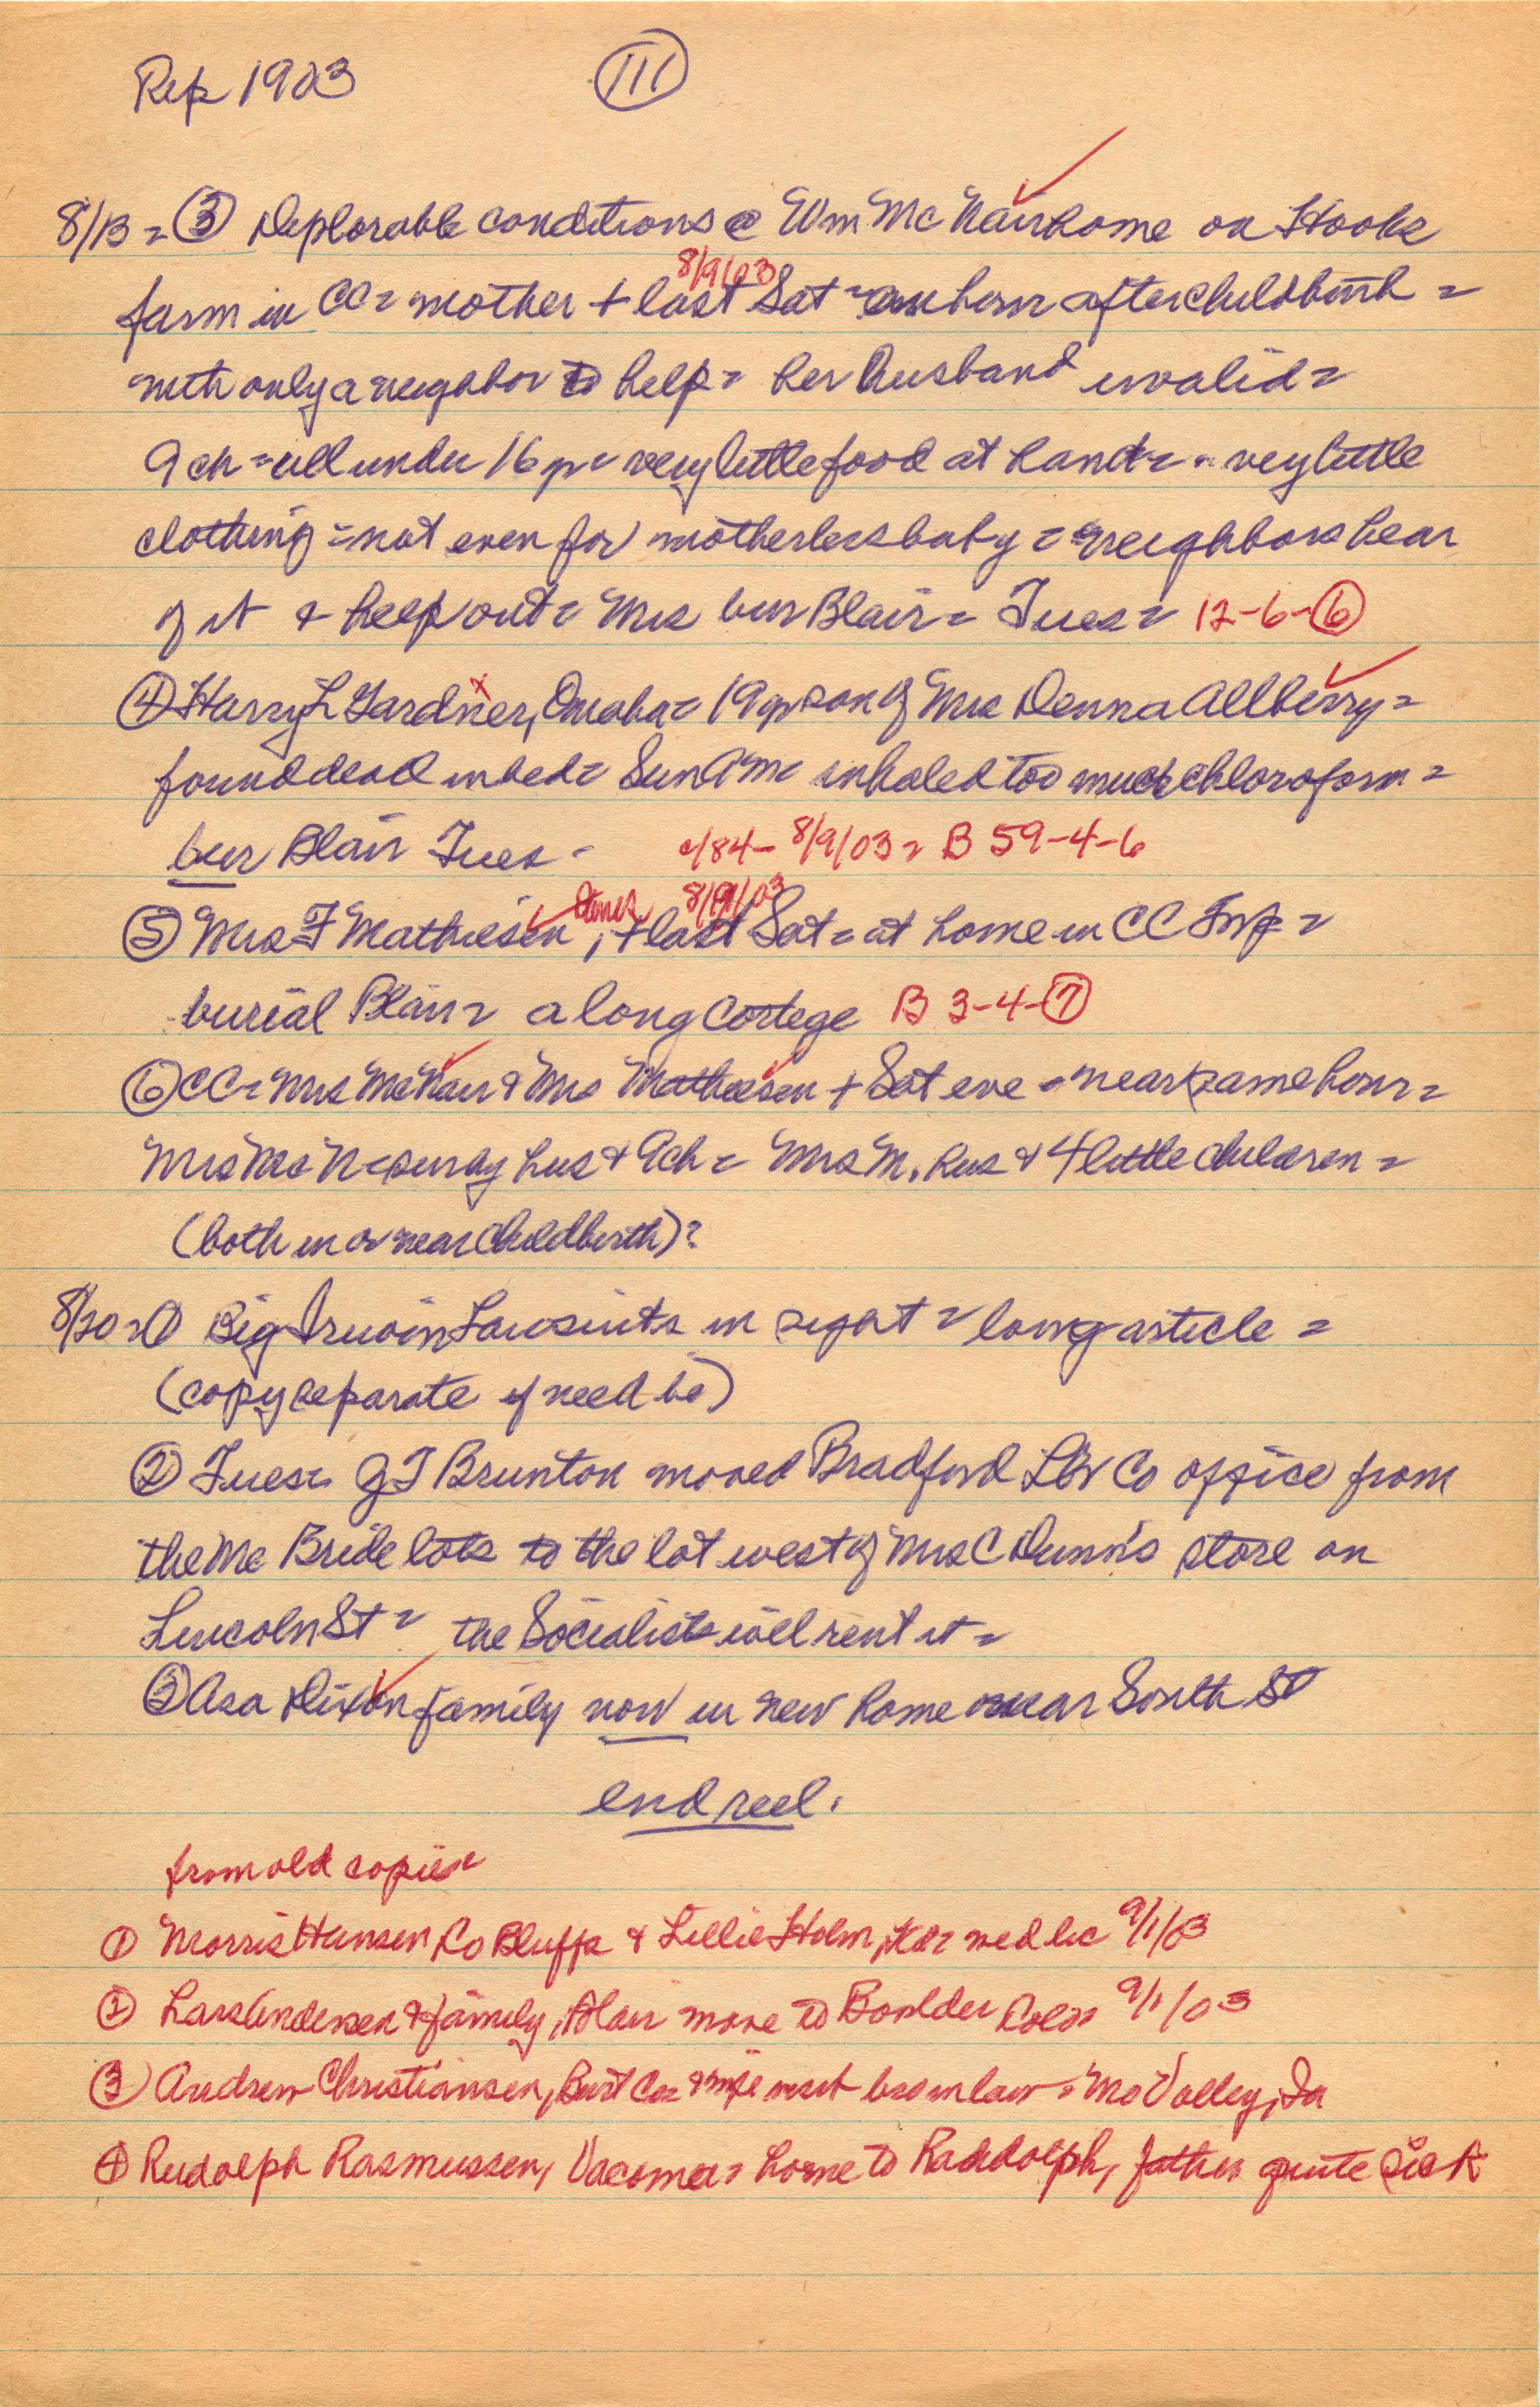 Rep 1903 (111)
8/13 = (3) Deplorable conditions @ Wm McNair home on Hooks
8/9/03
farm in CC = mother + last Sat = an hour after childbirth =
with only a neighbor to help = her husband invalid =
9 ch = all under 16 y = very little food at hand = very little
clothing = not even for motherless baby = neighbors hear
of it & help out = Mrs bur Blair = Tues = 12-6-(6)
(4) Harry L Gardner, Omaha = 19 yr son of Mrs Denna Allberry =
found dead in bed = Sun AM = inhaled too much chloroform =
bur Blair Tues - 8/9/03 = B 59-4-6
(5) Mrs F Mathiesen, + last Sat = at home in CC Twp =
burial Blair = a long cortege B 3-4-(7)
(6) CC = Mrs McNair & Mrs Mathiesen + Sat eve = near same hour =
Mrs McN = surv by hus & 9 ch = Mrs M. hus & 4 little children =
(both in or near childbirth)?
8/20 = (1) Big Irwin Lawsuits in sight = long article =
(copy separate if need be)
(2) Tues = G T Brunton moved Bradford Lbr Co office from
the McBride lots to the lot west of Mrs C Dunn's store on
Lincoln St = the Socialists will rent it =
(3) Asa Dixon family now in new home near South St
end reel.
from old copies
(1) Morris Hansen, Co Bluffs & Lillie Holm, wed lic 9/1/03
(2) Lars Andersen & family, Blair move to Boulder Colo = 9/1/03
(3) Andrew Christiansen, Burt Co = & wife visit bro in law = Mo Valley, Ia
(4) Rudolph Rasmussen, Vacoma = home to Randolph, father quite sick